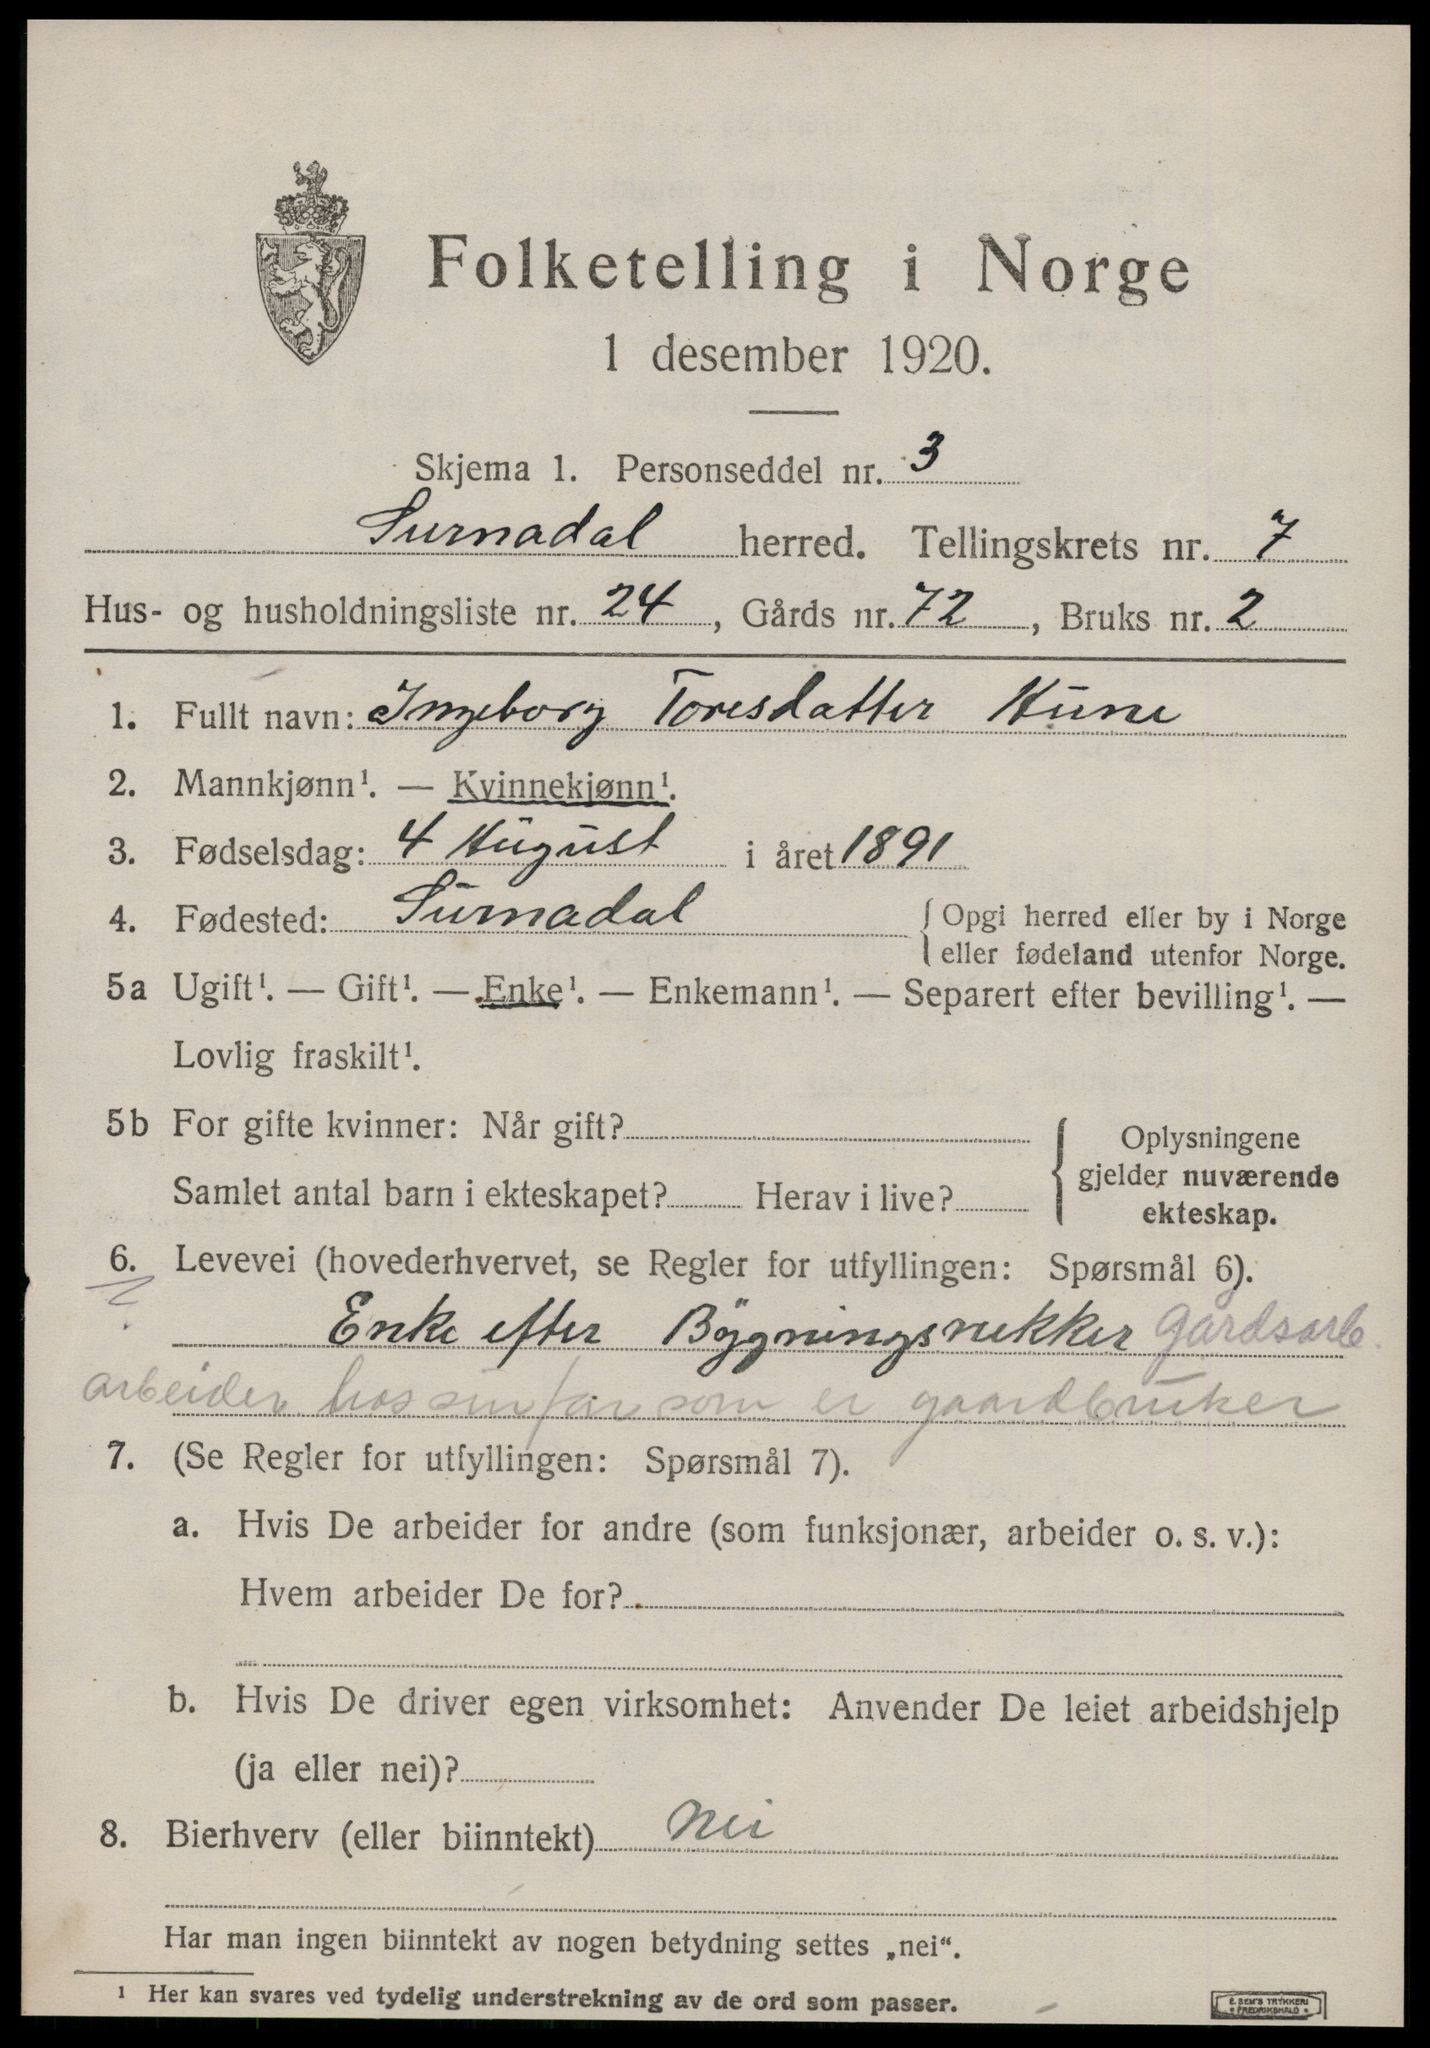 Folketelling i Norge
1 desember 1920.
Skjema 1. Personseddel nr. 3
Surnadal herred. Tellingskrets nr. 7
Hus- og husholdningsliste nr. 24, Gårds nr. 72, Bruks nr. 2
1. Fullt navn: Ingeborg Toresdatter Hune
2. Mannkjønn¹. — Kvinnekjønn¹.
3. Fødselsdag: 4 August i året 1891
4. Fødested: Surnadal { Opgi herred eller by i Norge
eller fødeland utenfor Norge.
5a Ugift¹. — Gift¹. — Enke¹. — Enkemann¹. — Separert efter bevilling¹. —
Lovlig fraskilt¹.
5b For gifte kvinner: Når gift? { Oplysningene
gjelder nuværende
ekteskap.
Samlet antal barn i ekteskapet? Herav i live?
6. Levevei (hovederhvervet, se Regler for utfyllingen: Spørsmål 6).
Enke efter Bygningsnekker Gårdsarb.
arbeider hos sin far som er gaardbruker
7. (Se Regler for utfyllingen: Spørsmål 7).
a. Hvis De arbeider for andre (som funksjonær, arbeider o. s. v.):
Hvem arbeider De for?
b. Hvis De driver egen virksomhet: Anvender De leiet arbeidshjelp
(ja eller nei)?
8. Bierhverv (eller biinntekt) Nei
Har man ingen biinntekt av nogen betydning settes „nei“.
¹ Her kan svares ved tydelig understrekning av de ord som passer.
E. SEM'S TRYKKERI
FREDRIKSHALD